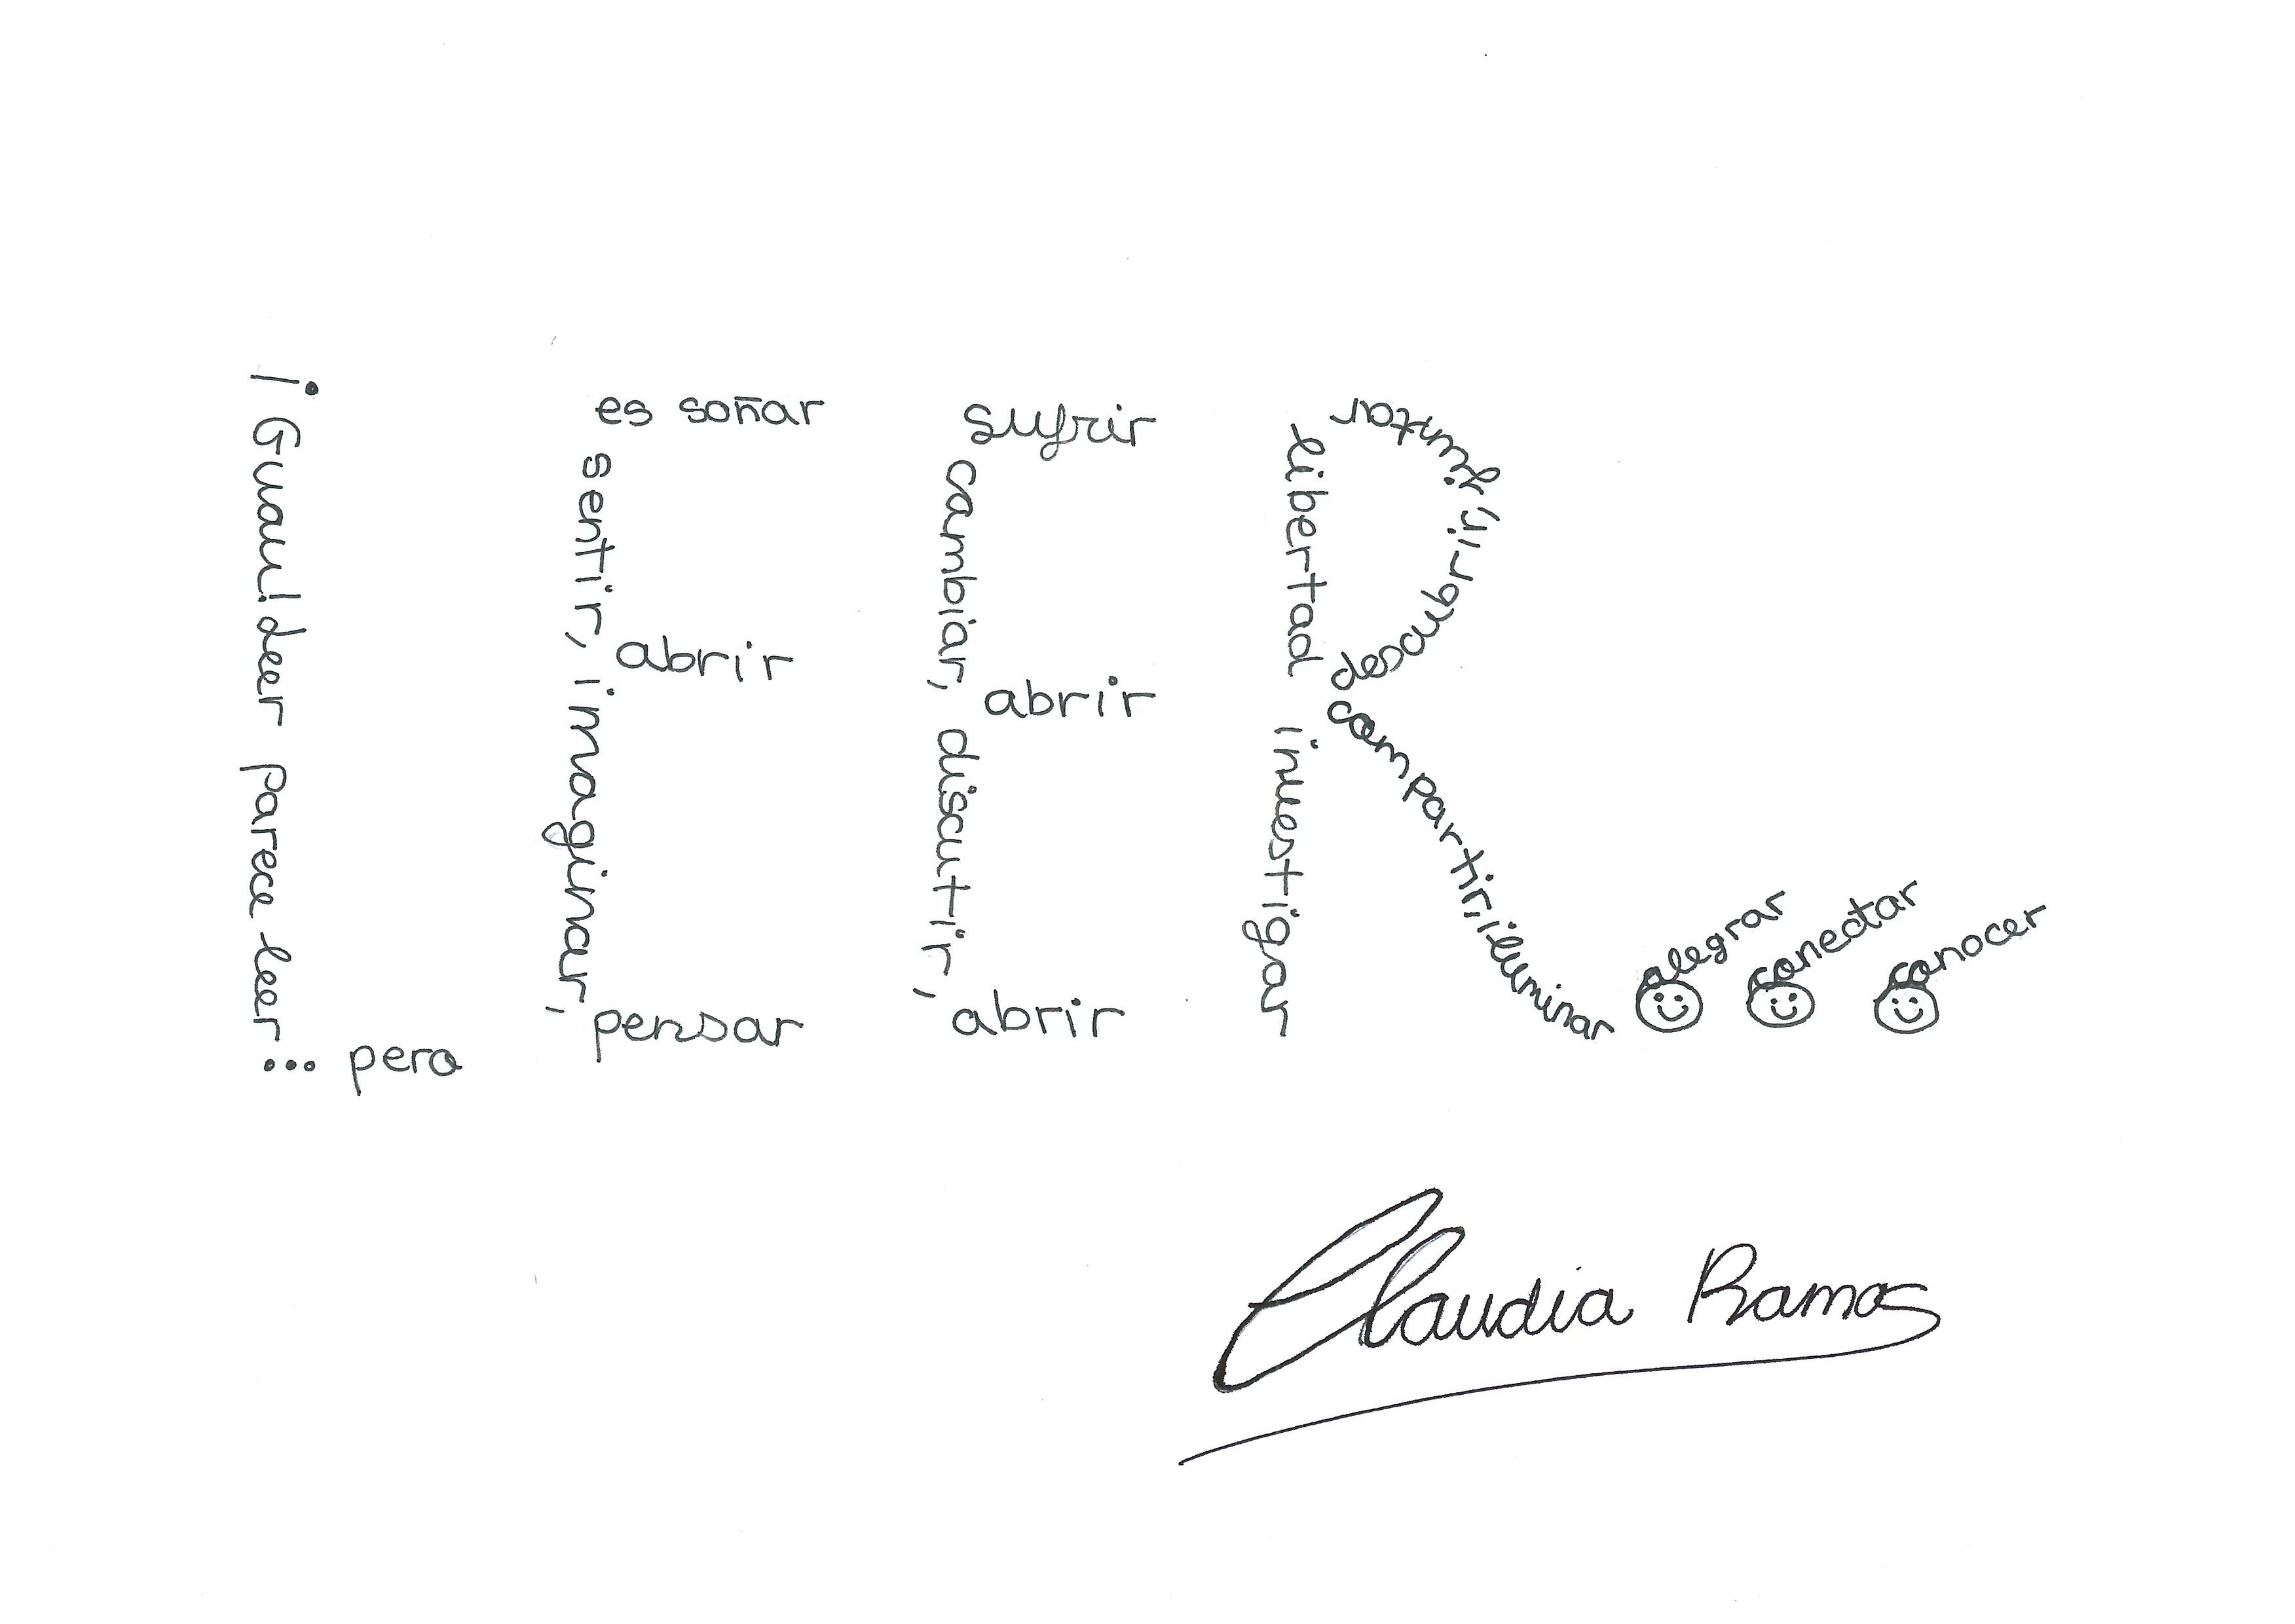 ¡Guau! leer parece leer... pero
es soñar
sentir, imaginar,
abrir
pensar
sufrir
cambiar, discutir,
abrir
abrir
libertad
investigar
descubrir, gritar
compartir, iluminar
alegrar
conectar
conocer
Claudia Ramos